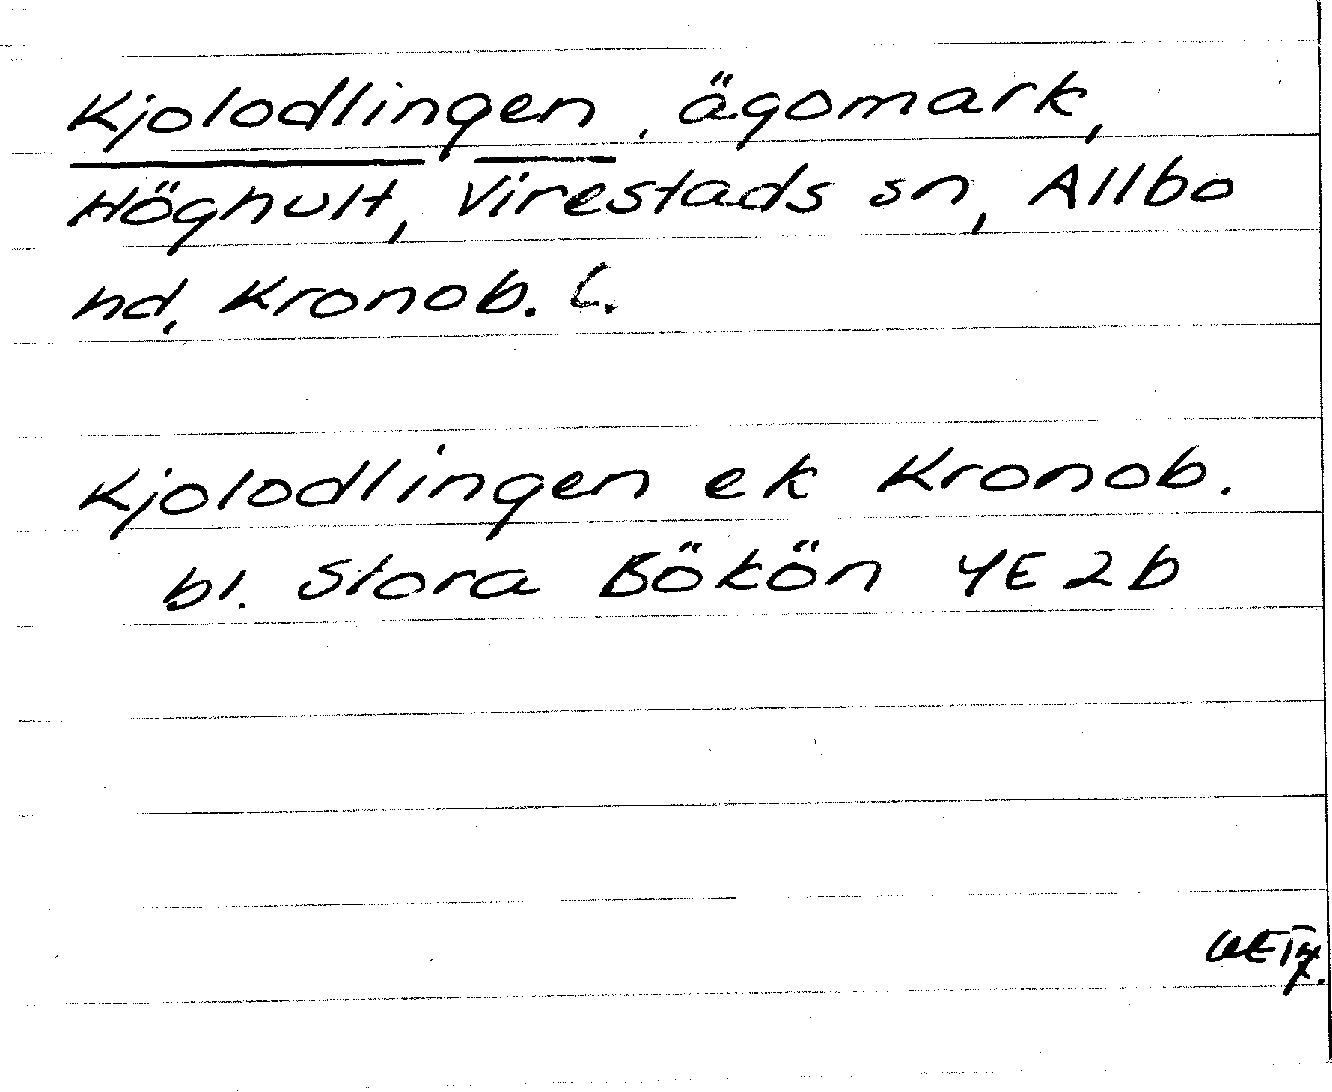 Kjolodlingen, ägomark,
Höghult, Virestads sn, Allbo
hd, Kronob. l.
Kjolodlingen ek Kronob.
bl. Stora Bökön 4E2b